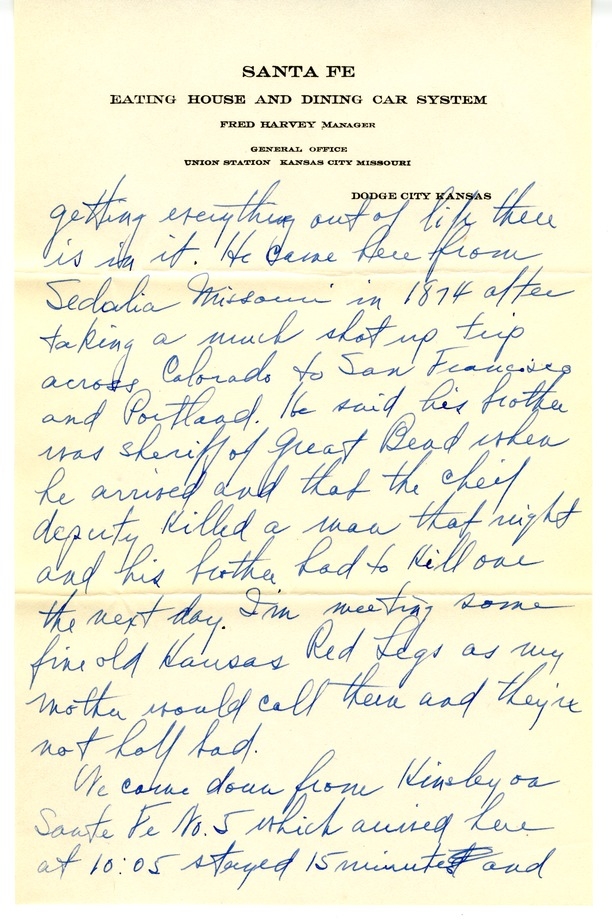 SANTA FE
EATING HOUSE AND DINING CAR SYSTEM
FRED HARVEY MANAGER
GENERAL OFFICE
UNION STATION KANSAS CITY MISSOURI
DODGE CITY KANSAS
getting everything out of life there
is in it. He came here from
Sedalia Missouri in 1874 after
taking a much shot up trip
across Colorado to San Francisco
and Portland. He said his brother
was sheriff of Great Bend when
he arrived and that the cheif
deputy killed a man that night
and his brother had to kill one
the next day. I'm meeting some
fine old Kansas Red Legs as my
mother would call them and they're
not half bad.
We came down from Kinsley on
Santa Fe No. 5 which arrived here
at 10:05 stayed 15 minutes and